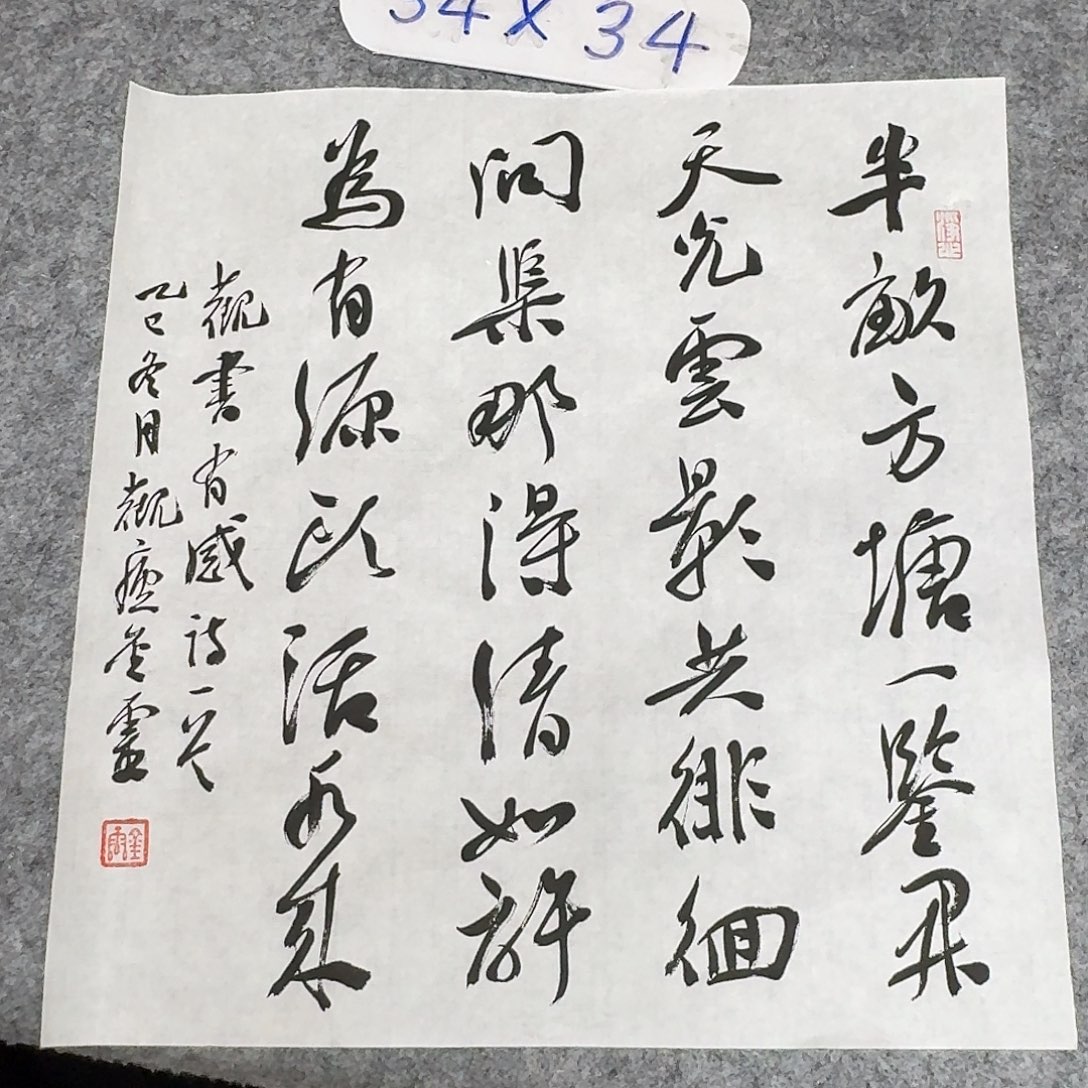 34 X 34
半畝方塘一鑒開
天光雲影共徘徊
問渠那得清如許
為有源頭活水來
觀書有感詩一首
乙巳冬月觀 金靈